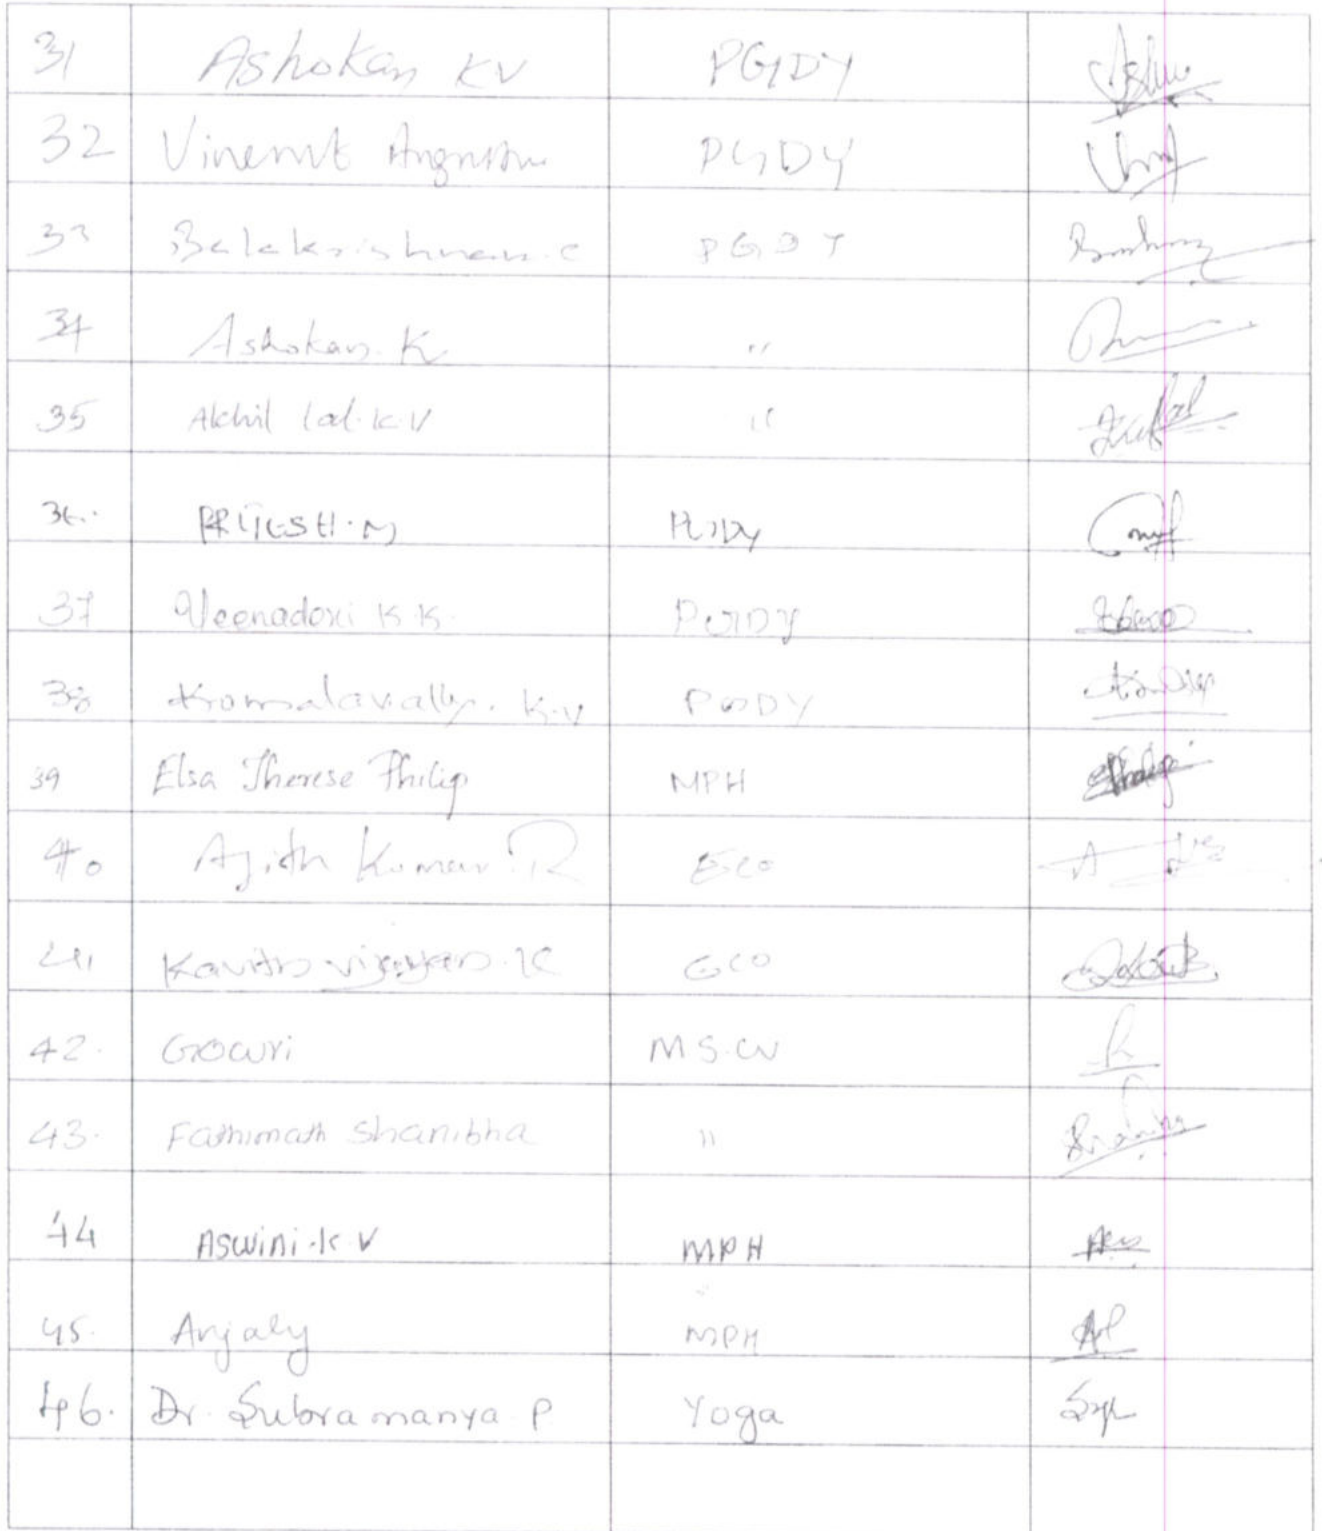 31 Ashokan KV PGDY
32 Vincent Augustine PGDY
33 Balakrishnan. C PGDY
34 Ashokan. K "
35 Akhil lal. K. V "
36. PRIJESH. M PGDY
37 Veenadevi K. K. PGDY
38 Komalavally. K. V PGDY
39 Elsa Therese Philip MPH
40 Ajith Kumar. R Eco
41 Kavitha vijayan. K Eco
42. Gowri MSW
43. Fathimath Shanibha "
44 ASwini. K V MPH
45. Anjaly MPH
46. Dr. Subramanya. P Yoga